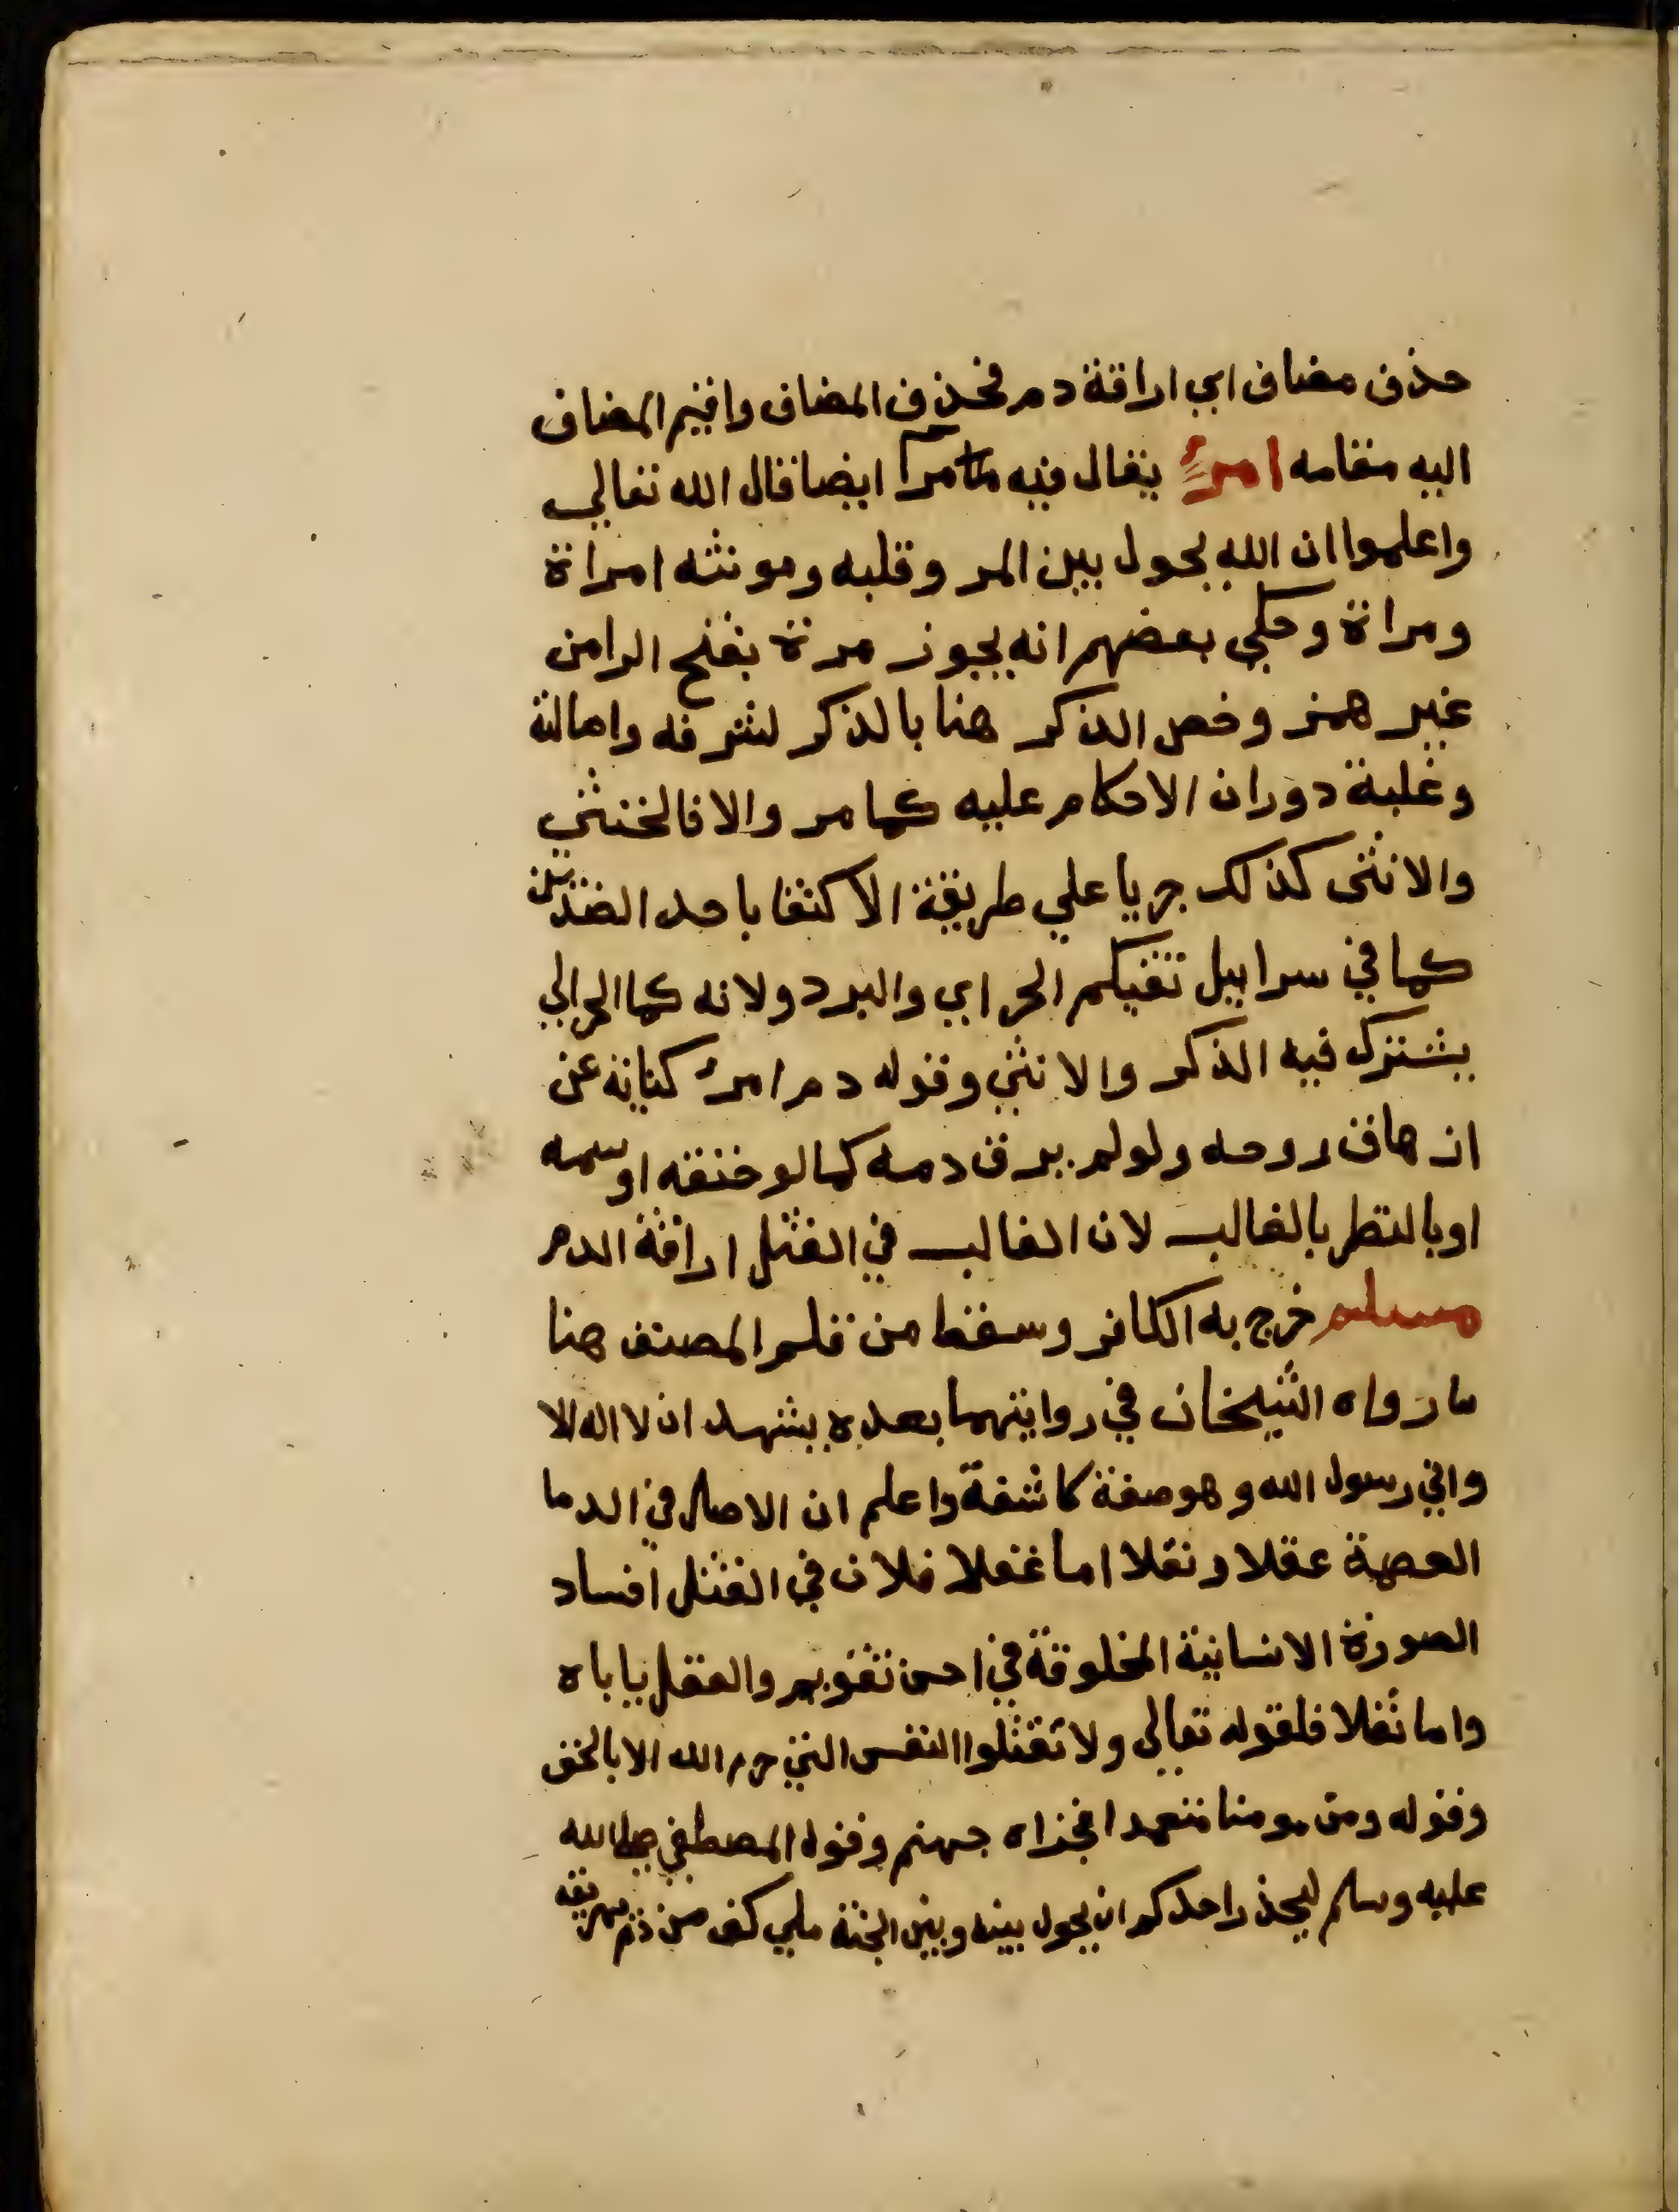 حذف مضاف اي اراقة دم فحذف المضاف واقيم المضاف
اليه مقامه امرئ يقال فيه مرا ايضا قال الله تعالي
واعلموا ان الله يحول بين المر وقلبه ومونثه امراة
ومراة وحكي بعضهم انه يجوز مرة بفتح الرا من
غير همز وخص الذكر هنا بالذكر لشرفه واصالته
وغلبة دوران الاحكام عليه كما مر والا فالخنثي
والانثي كذلك جريا علي طريقة الاكتفا باحد الضدين
كما في سرابيل تقيكم الحر اي والبرد ولانه كما الحرالي
يشترك فيه الذكر والانثي وقوله دم امرئ كناية عن
ازهاق روحه ولو لم يرق دمه كما لو خنقه او سمه
او بالنظر بالغالب لان الغالب في القتل اراقة الدم
مسلم خرج به الكافر وسقط من قلم المصنف هنا
ما رواه الشيخان في روايتهما بعده يشهد ان لا اله الا
واني رسول الله وهو صفة كاشفة واعلم ان الاصل في الدما
العصمة عقلا ونقلا اما عقلا فلان في القتل افساد
الصورة الانسانية المخلوقة في احسن تقويم والعقل ياباه
واما نقلا فلقوله تعالي ولا تقتلوا النفس التي حرم الله الا بالحق
وقوله ومن مومنا متعمدا فجزاه جهنم وقوله المصطفي صلي الله
عليه وسلم ليحذر احدكم ان يحول بينه وبين الجنة ملي كف من دم يهريقه